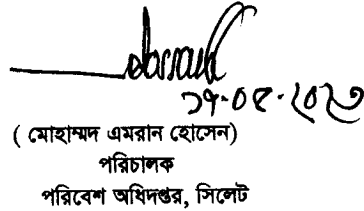 ১৭-০৫-২০২৩
( মোহাম্মদ এমরান হোসেন)
পরিচালক
পরিবেশ অধিদপ্তর, সিলেট